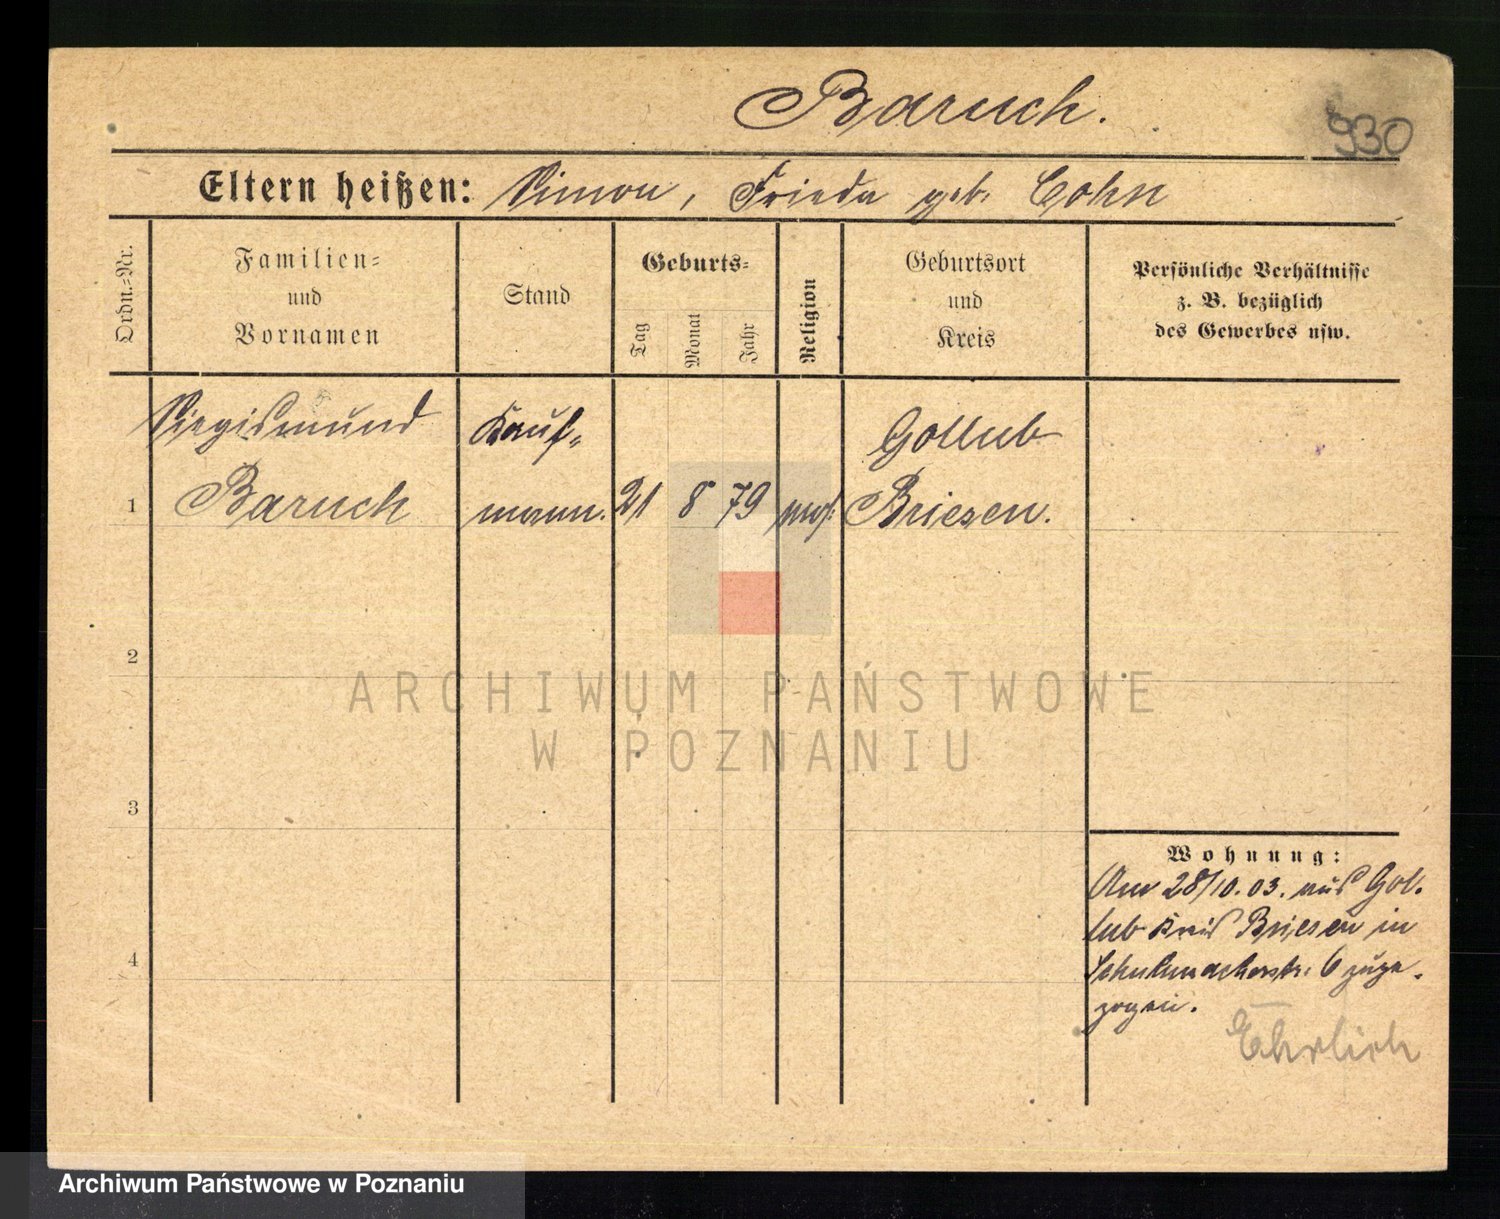 Baruch.
930
Eltern heißen: Simon, Frieda geb. Cohn
Ordn.-Nr.
Familien-
und
Vornamen
Stand
Geburts-
Tag
Monat
Jahr
Religion
Geburtsort
und
Kreis
Persönliche Verhältnisse
z. B. bezüglich
des Gewerbes usw.
Siegismund
Baruch
Kauf-
mann.
1
21 8 79 mos.
Gollub
Briesen.
2
3
4
Wohnung:
Am 28/10.03. aus Gol-
lub Kreis Briesen in
Schuhmacherstr. 6 zuge-
zogen.
Ehrlich
ARCHIWUM PAŃSTWOWE
W POZNANIU
Archiwum Państwowe w Poznaniu